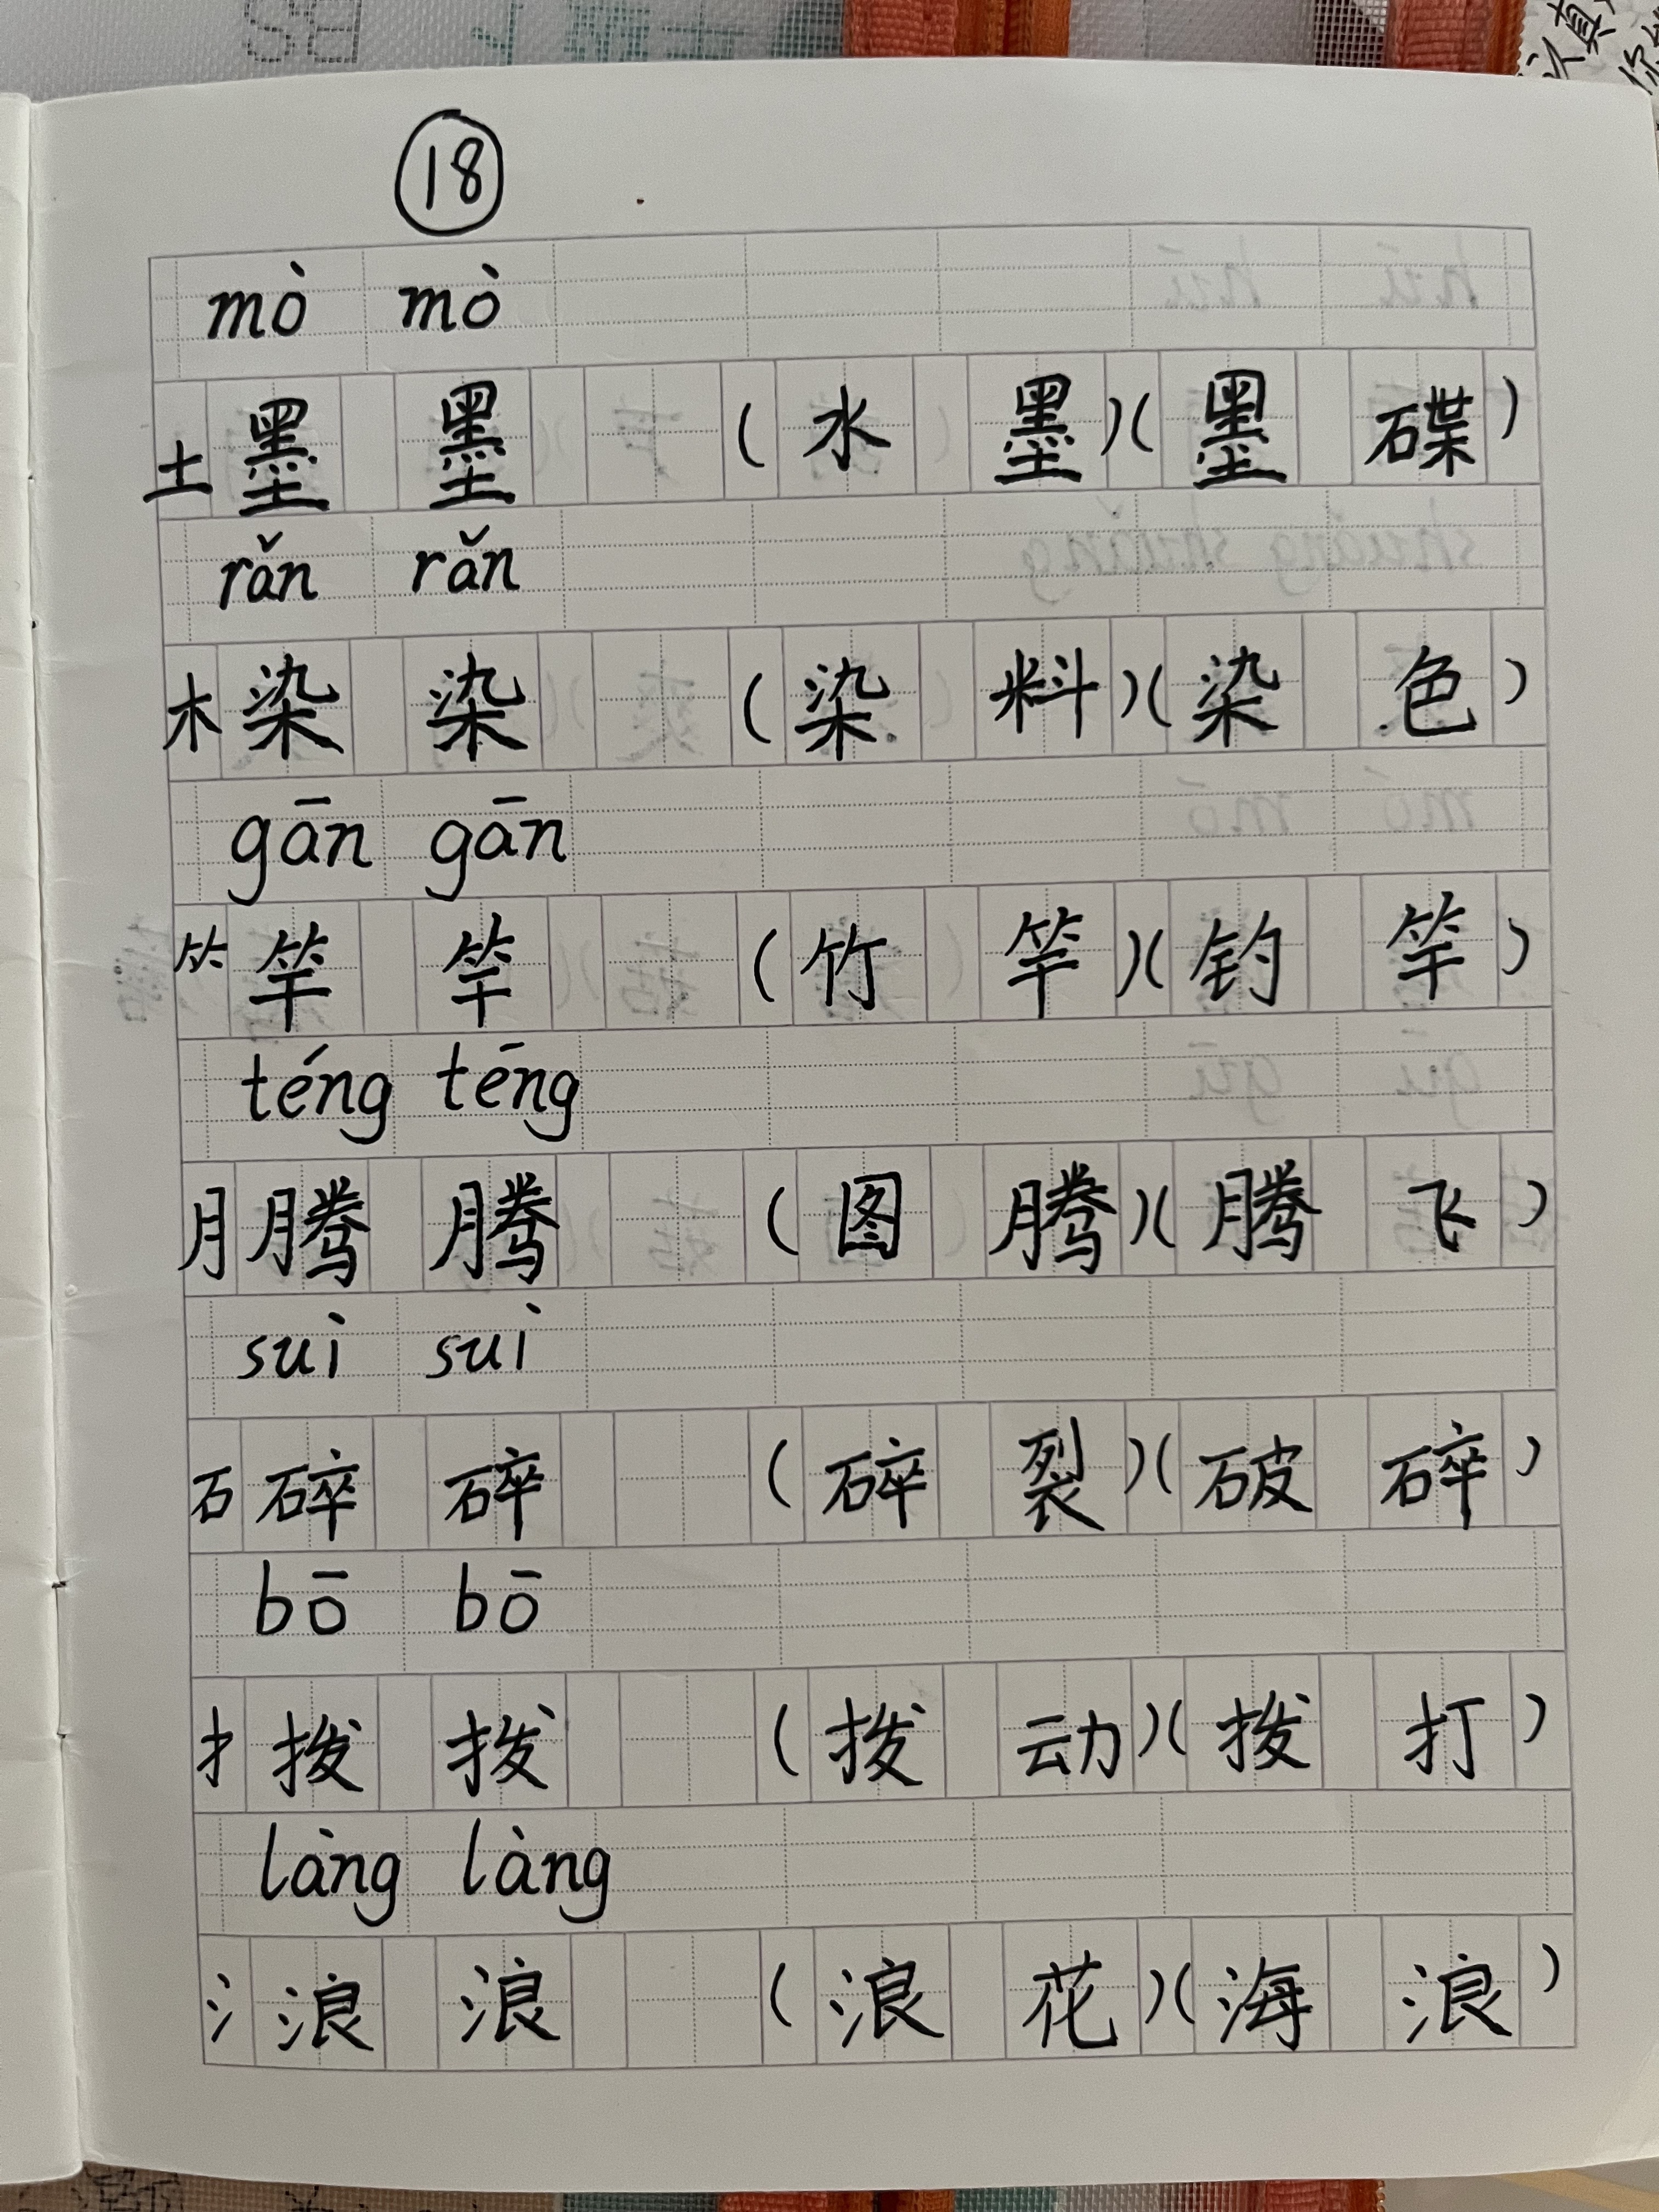 18
mò mò
土 墨 墨 (水墨)(墨碟)
rǎn rǎn
木 染 染 (染料)(染色)
gān gān
⺮ 竿 竿 (竹竿)(钓竿)
téng tēng
月 腾 腾 (图腾)(腾飞)
suì suì
石 碎 碎 (碎裂)(破碎)
bō bō
扌 拨 拨 (拨动)(拨打)
làng làng
氵 浪 浪 (浪花)(海浪)